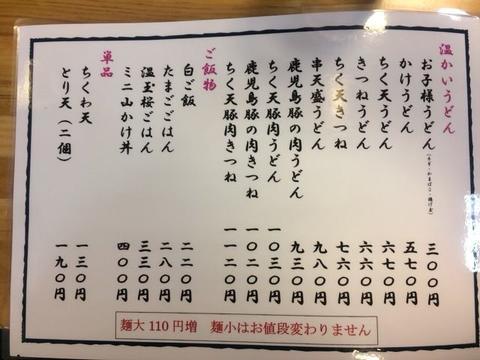 温かいうどん
お子様うどん(ネギ・かまぼこ・揚げ玉) 三〇〇円
かけうどん 五七〇円
ちく天うどん 六七〇円
きつねうどん 六六〇円
ちく天きつね 七六〇円
串天盛うどん 九八〇円
鹿児島豚の肉うどん 九三〇円
ちく天豚肉うどん 一〇三〇円
鹿児島豚の肉きつね 一〇二〇円
ちく天豚肉きつね 一一二〇円
ご飯物
白ご飯 二二〇円
たまごごはん 二八〇円
温玉桜ごはん 三三〇円
ミニ山かけ丼 四〇〇円
単品
ちくわ天 一三〇円
とり天(二個) 一九〇円
麺大110円増 麺小はお値段変わりません